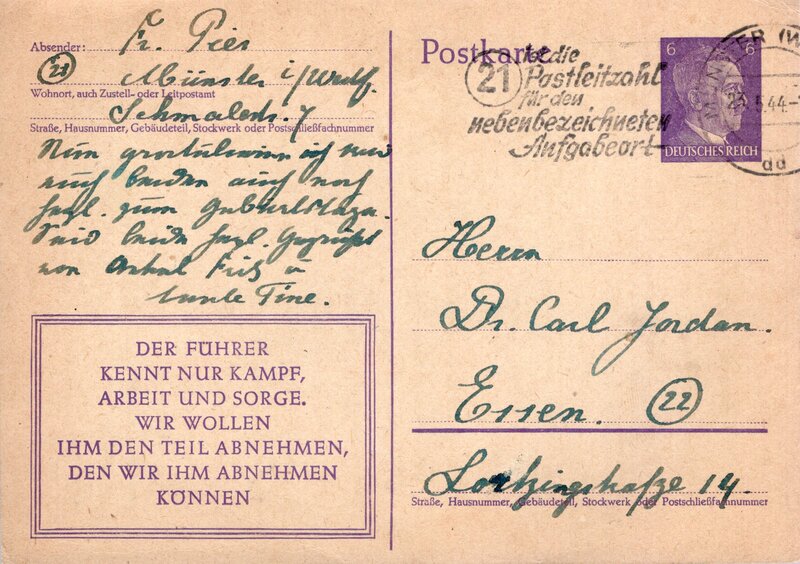 Absender: Fr. Pier
(21) Münster i/Westf.
Wohnort, auch Zustell- oder Leitpostamt
Straße, Hausnummer, Gebäudeteil, Stockwerk oder Postschließfachnummer
Nun gratulieren ich
auch beiden auch noch
herzl. zum Geburtstage.
Seid beide herzl. gegrüßt
von Onkel Fritz u
Tante Tine.
DER FÜHRER
KENNT NUR KAMPF,
ARBEIT UND SORGE.
WIR WOLLEN
IHM DEN TEIL ABNEHMEN,
DEN WIR IHM ABNEHMEN
KÖNNEN
Postkarte
21 ist die
Postleitzahl
für den
nebenbezeichneten
Aufgabeort
6 6
DEUTSCHES REICH
MÜNSTER (W
5.44
dd
Herrn
Dr. Carl Jordan.
Essen. (22)
Lortzingstraße 14.
Straße, Hausnummer, Gebäudeteil, Stockwerk oder Postschließfachnummer